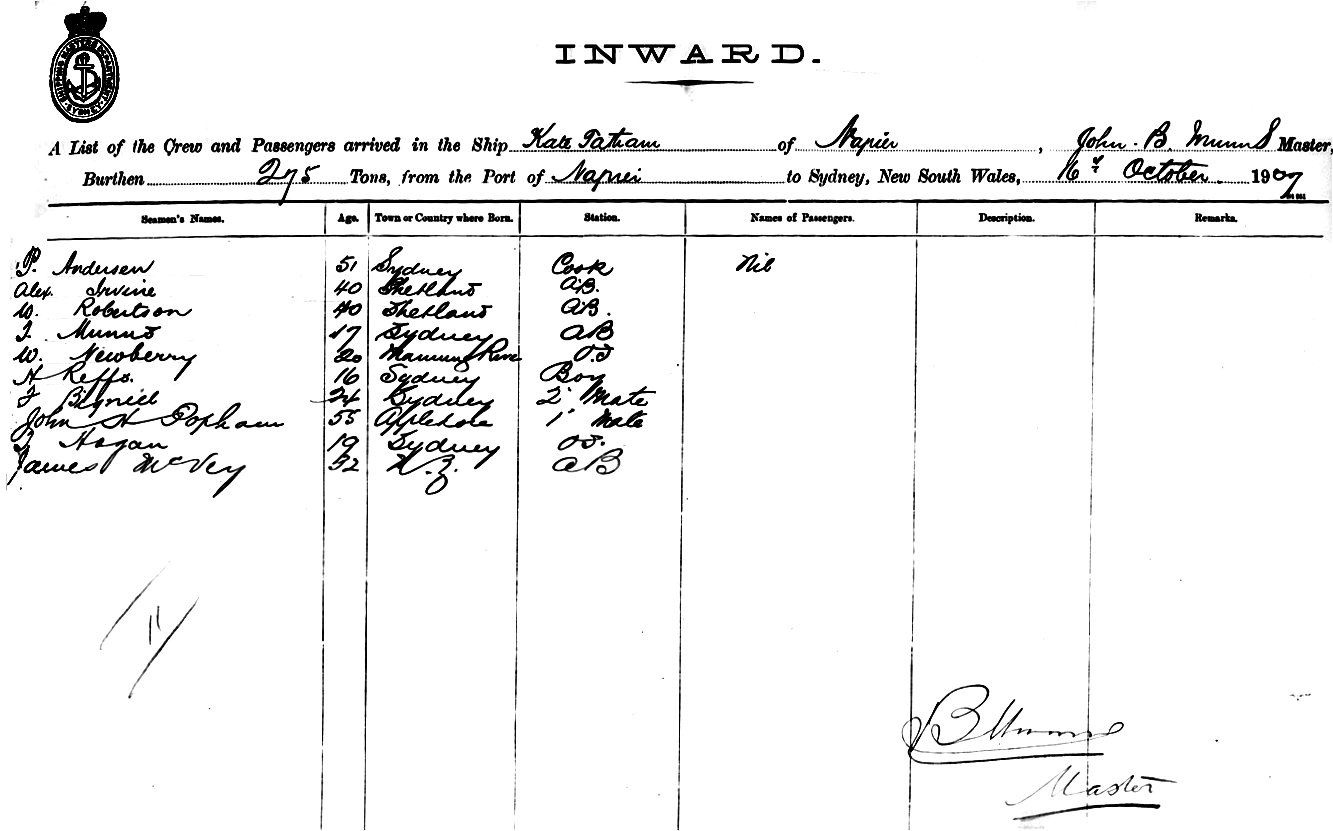 SHIPPING MASTERS DEPARTMENT SYDNEY
INWARD.
A List of the Crew and Passengers arrived in the Ship Kate Tatham of Napier, John. B. Munro Master,
Burthen 275 Tons, from the Port of Napier to Sydney, New South Wales, 16th October 1907
Seamen's Names. Age. Town or Country where Born. Station. Names of Passengers. Description. Remarks.
P. Andersen 51 Sydney Cook Nil
Alex. Irvine 40 Shetland A.B.
W. Robertson 40 Shetland A.B.
J. Munro 17 Sydney AB
W. Newberry 20 Manning River O.S
H Reffs. 16 Sydney Boy
F 24 Sydney 2 Mate
John H Popham 55 Appledore 1 Mate
Hogan 19 Sydney O.S.
James McVey 32 N.Z. AB
11
JB Munro
Master